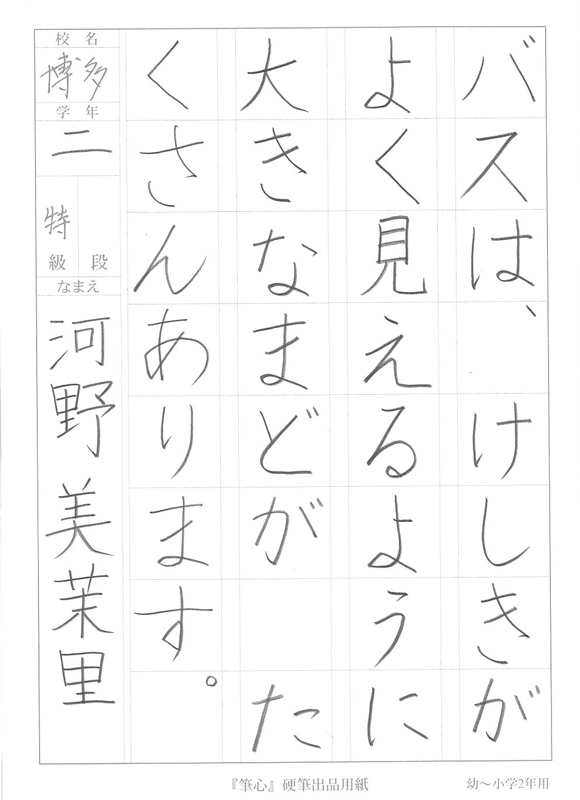 バスは、けしきが
よく見えるように
大きなまどが た
くさんあります。
校名
博多
学年
二
特
級 段
なまえ
河野 美茉里
『筆心』硬筆出品用紙
幼〜小学2年用